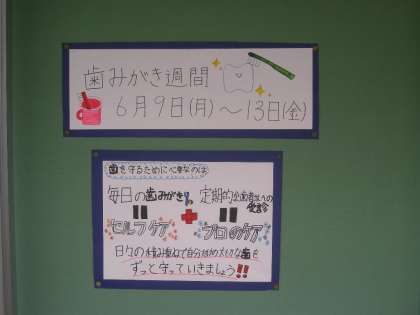 歯みがき週間
6月9日(月)～13日(金)
歯を守るために必要なのは
毎日の歯みがき + 定期的な歯医者さんへの受診
セルフケア プロのケア
日々の積み重ねで自分の大切な歯を
ずっと守っていきましょう!!